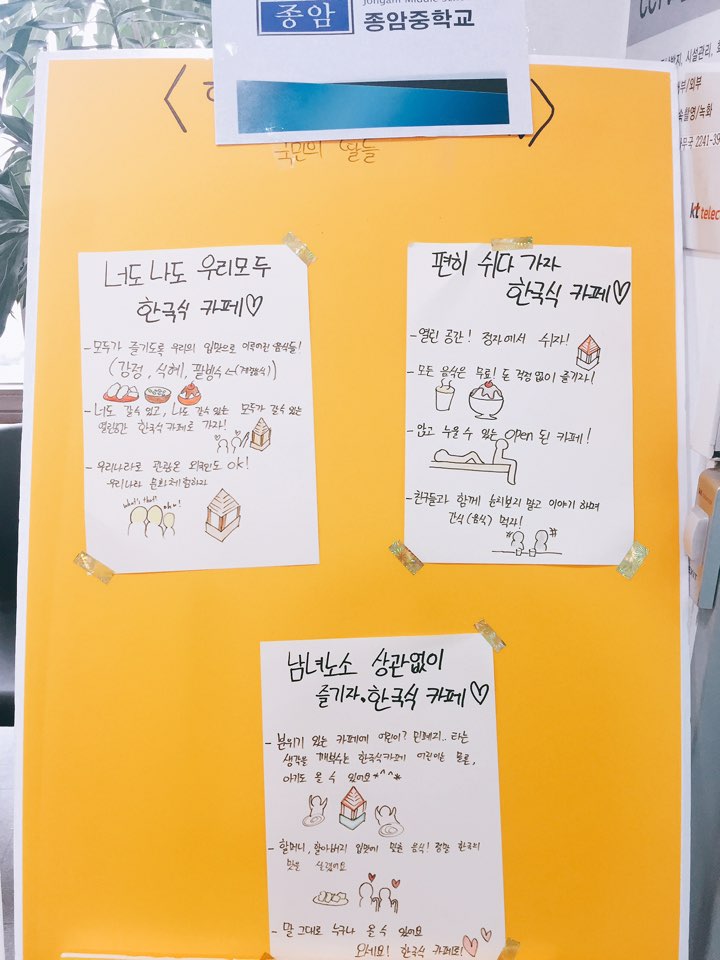 종암
종암중학교
국민의 딸들
너도 나도 우리모두
한국식 카페♡
- 모두가 즐기도록 우리의 입맛으로 이루어진 음식들!
(강정, 식혜, 팥빙수 ← (계절음식))
- 너도 갈 수 있고, 나도 갈 수 있는 모두가 갈 수 있는
열린공간 한국식 카페로 가자!
- 우리나라로 관광온 외국인도 OK!
우리나라 문화체험하자
what's that?
oho!
편히 쉬다 가자
한국식 카페♡
- 열린 공간! 정자에서 쉬자!
- 모든 음식은 무료! 돈 걱정없이 즐기자!
- 앉고 누울 수 있는 open 된 카페!
- 친구들과 함께 눈치보지 말고 이야기 하며
간식(음식) 먹자!
남녀노소 상관없이
즐기자. 한국식 카페♡
- 분위기 있는 카페에 어린이? 민폐지.. 라는
생각을 깨부수는 한국식카페 어린이는 물론,
아기도 올 수 있어요*^^*
- 할머니, 할아버지 입맛에 맞춘 음식! 정말 한국의
맛을 살렸어요
- 말 그대로 누구나 올 수 있어요
오세요! 한국식 카페로!
시설관리,
부/외부
촬영/녹화
2241-39
kt telec